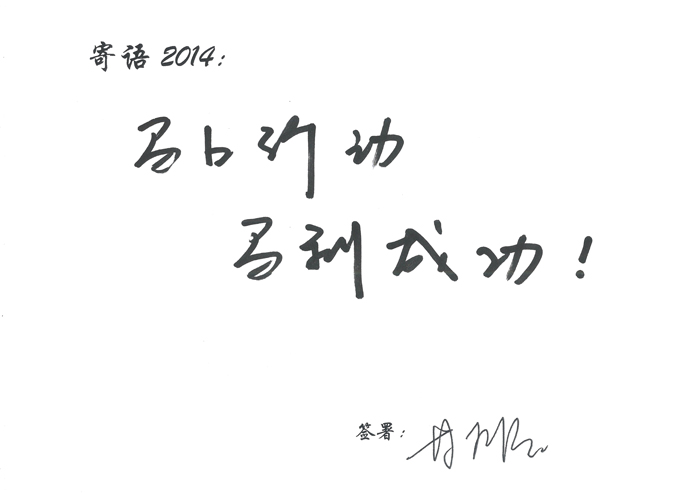 寄语 2014:
马上行动
马到成功！
签署：